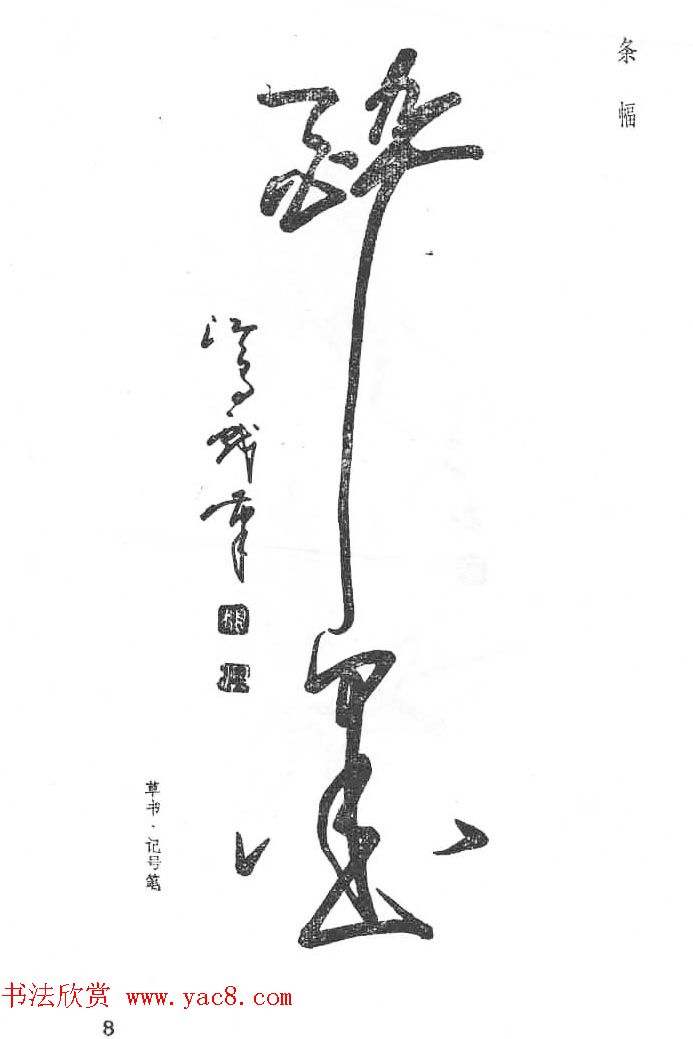 条幅
醉墨
草书·记号笔
书法欣赏 www.yac8.com
8